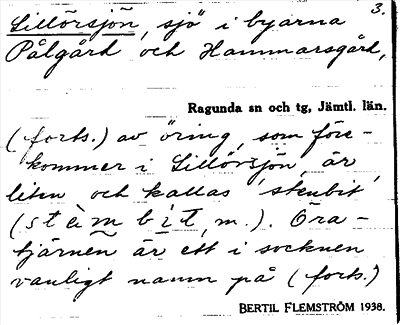 3.
Lillörsjön, sjö i byarna
Pålgård och Hammarsgård,
Ragunda sn och tg, Jämtl. län.
(forts.) av öring, som före-
kommer i Lillörsjön, är
liten och kallas 'stenbit'
(stèmbìt, m.). Öra-
tjärnen är ett i socknen
vanligt namn på (forts.)
BERTIL FLEMSTRÖM 1938.